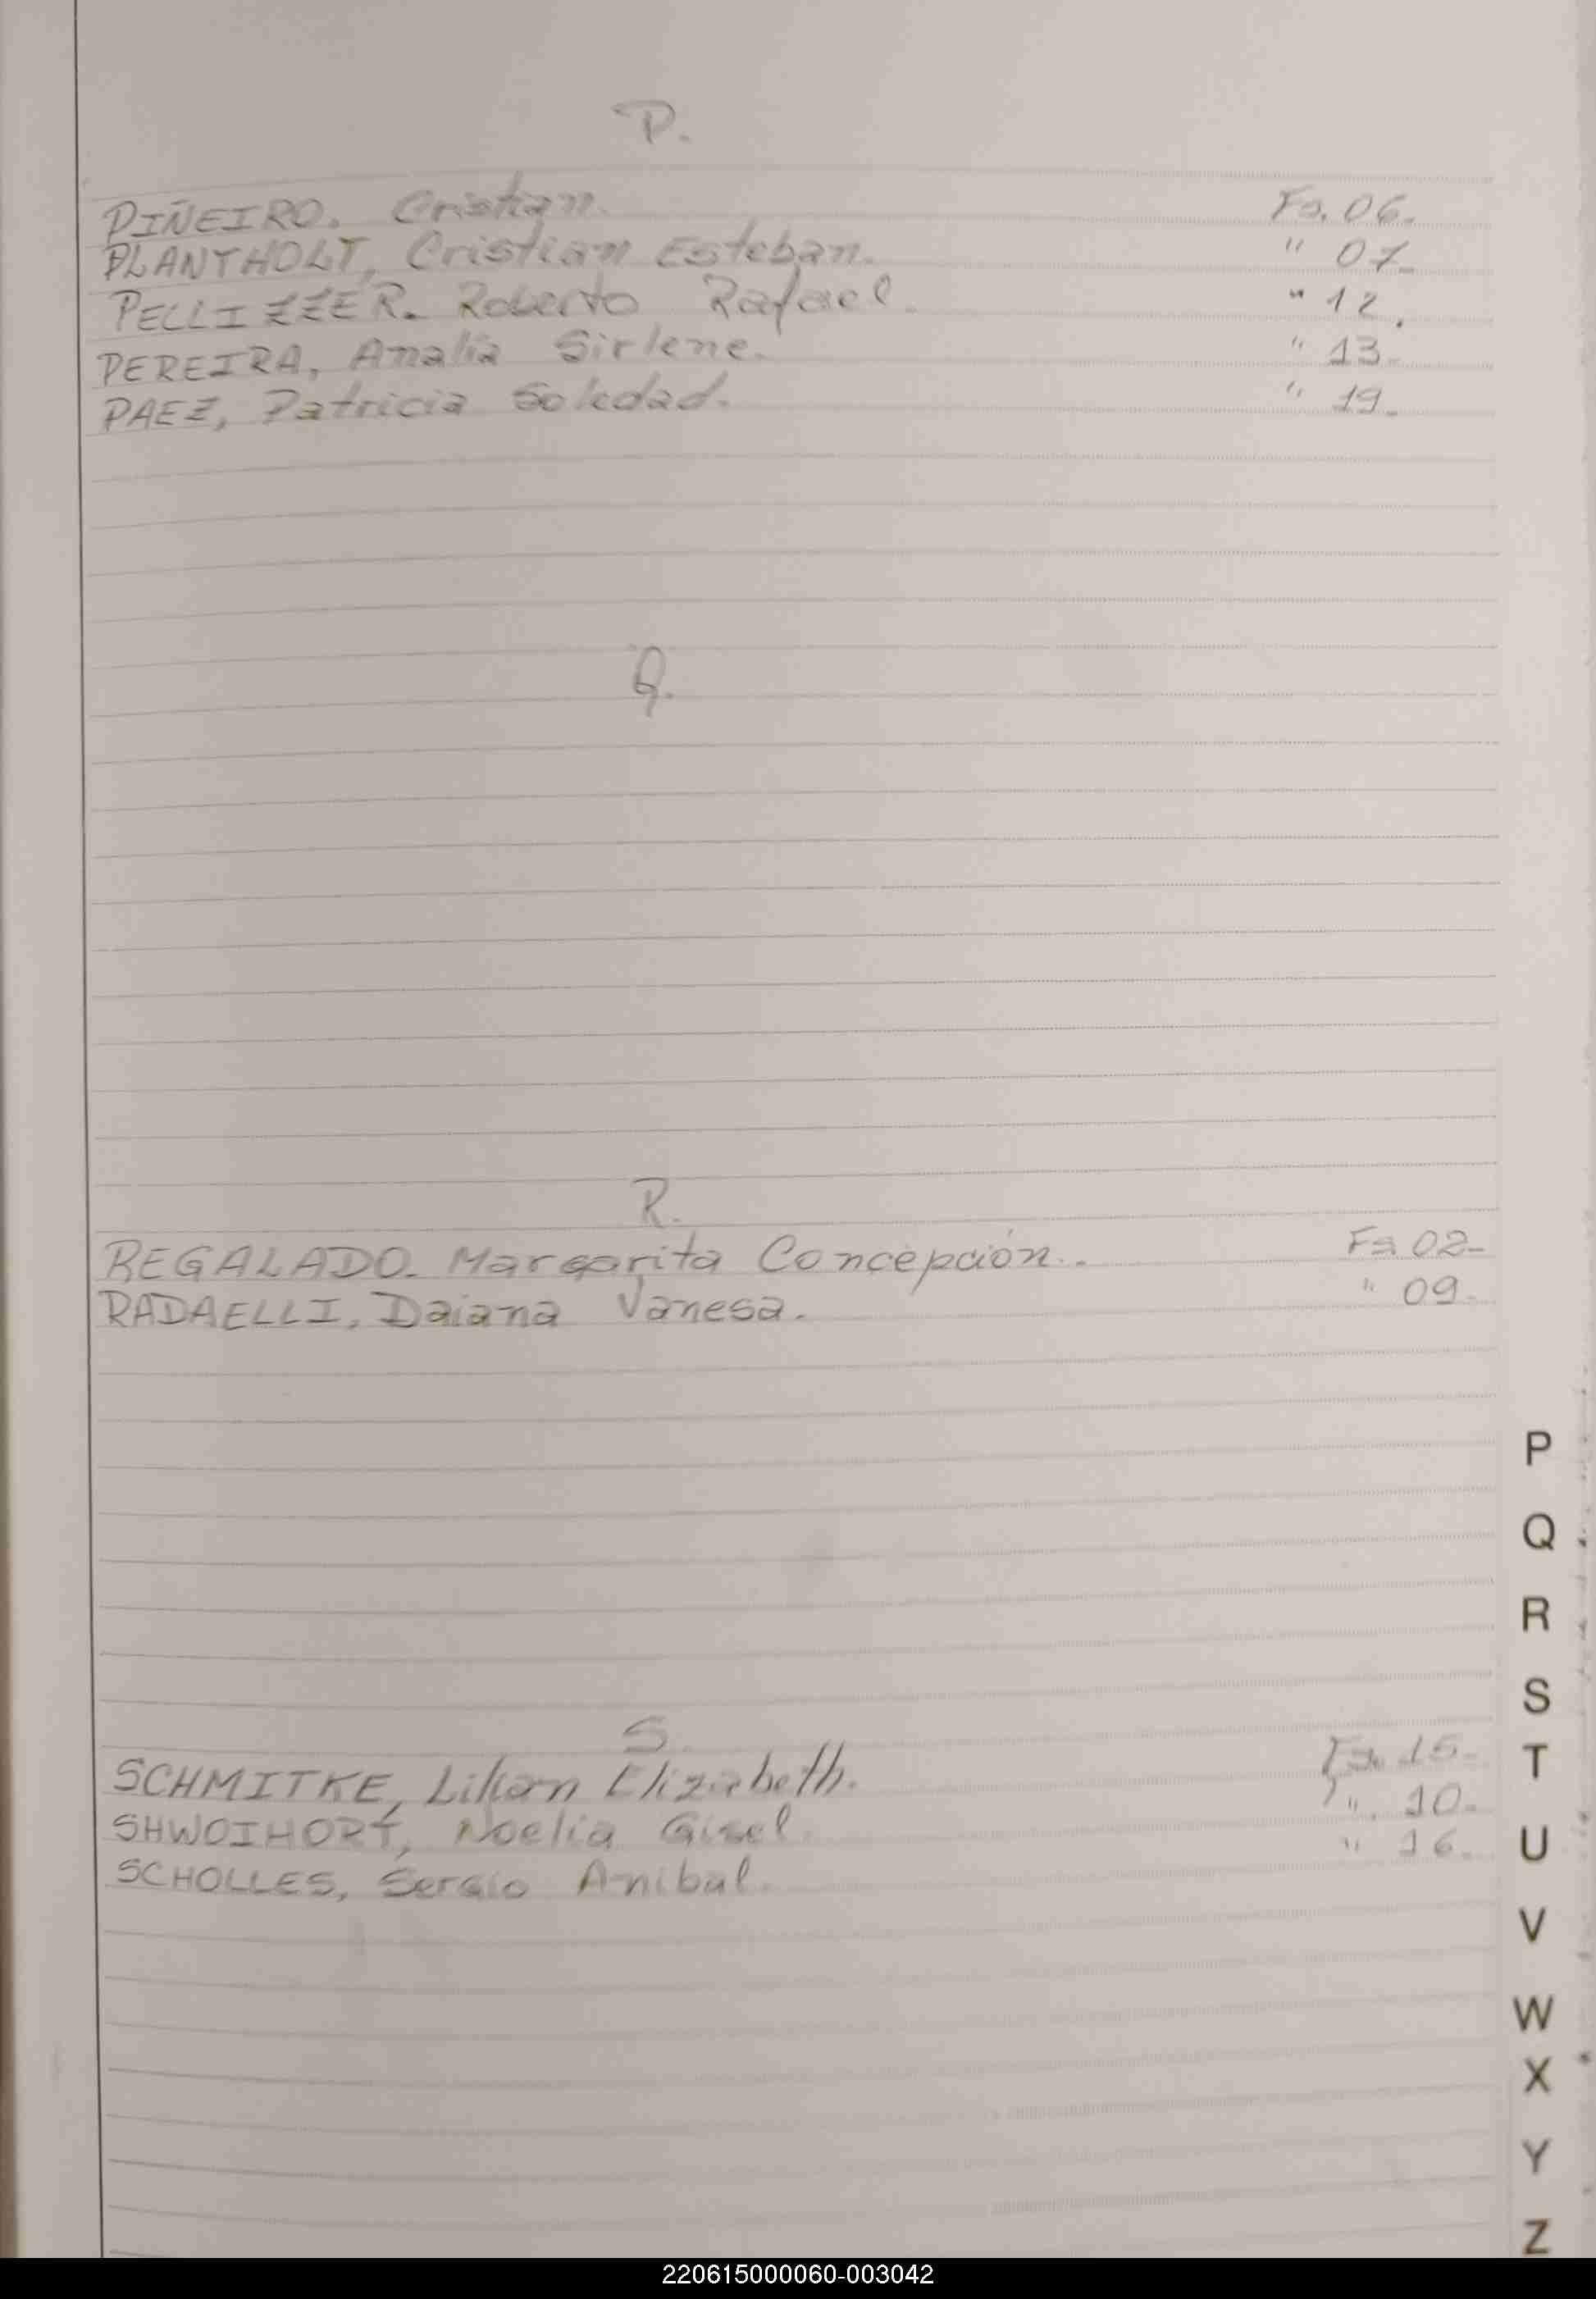 P.
PIÑEIRO. Cristian. Fs. 06.
PLANTHOLT, Cristian Esteban. " 07.
PELLIZZER. Roberto Rafael. " 12.
PEREIRA, Analia Sirlene. " 13.
PAEZ, Patricia Soledad. " 19.
Q.
R.
REGALADO. Margarita Concepción.. Fs. 02-
RADAELLI, Daiana Vanesa. " 09.
S.
SCHMITKE, Lilian Elizabeth. Fs. 15.
SHWOIHORT, Noelia Gisel. " 10.
SCHOLLES, Sergio Anibal. " 16.
P
Q
R
S
T
U
V
W
X
Y
Z
220615000060-003042